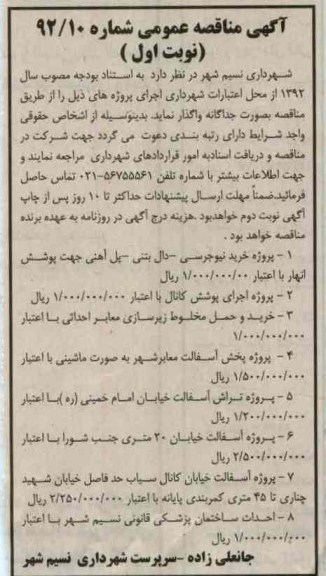 آگهی مناقصه عمومی شماره ۹۲/۱۰
(نوبت اول)
شهرداری نسیم شهر در نظر دارد به استناد بودجه مصوب سال
۱۳۹۲ از محل اعتبارات شهرداری اجرای پروژه های ذیل را از طریق
مناقصه بصورت جداگانه واگذار نماید. بدینوسیله از اشخاص حقوقی
واجد شرایط دارای رتبه بندی دعوت می گردد جهت شرکت در
مناقصه و دریافت اسنادبه امور قراردادهای شهرداری مراجعه نمایند و
جهت اطلاعات بیشتر با شماره تلفن ۵۶۷۵۵۵۶۱-۰۲۱ تماس حاصل
فرمائید.ضمناً مهلت ارسال پیشنهادات حداکثر تا ۱۰ روز پس از چاپ
آگهی نوبت دوم خواهدبود .هزینه درج آگهی در روزنامه به عهده برنده
مناقصه خواهد بود .
۱ - پروژه خرید نیوجرسی -دال بتنی -پل آهنی جهت پوشش
انهار با اعتبار ۱/۰۰۰/۰۰۰/۰۰ ریال
۲ - پروژه اجرای پوشش کانال با اعتبار ۱/۰۰۰/۰۰۰/۰۰۰ ریال
۳ - خرید و حمل مخلوط زیرسازی معابر احداثی با اعتبار
۱/۰۰۰/۰۰۰/۰۰۰
۴ - پروژه پخش آسفالت معابرشهر به صورت ماشینی با اعتبار
۱/۵۰۰/۰۰۰/۰۰۰ ریال
۵ - پروژه تراش آسفالت خیابان امام خمینی (ره )با اعتبار
۱/۲۰۰/۰۰۰/۰۰۰ ریال
۶ - پروژه آسفالت خیابان ۲۰ متری جنب شورا با اعتبار
۲/۵۰۰/۰۰۰/۰۰۰ ریال
۷ - پروژه آسفالت خیابان کانال سیاب حد فاصل خیابان شهید
چناری تا ۴۵ متری کمربندی پایانه با اعتبار ۲/۲۵۰/۰۰۰/۰۰۰ ریال
۸ - احداث ساختمان پزشکی قانونی نسیم شهر با اعتبار
۱/۰۰۰/۰۰۰/۰۰۰ ریال
جانعلی زاده -سرپرست شهرداری نسیم شهر